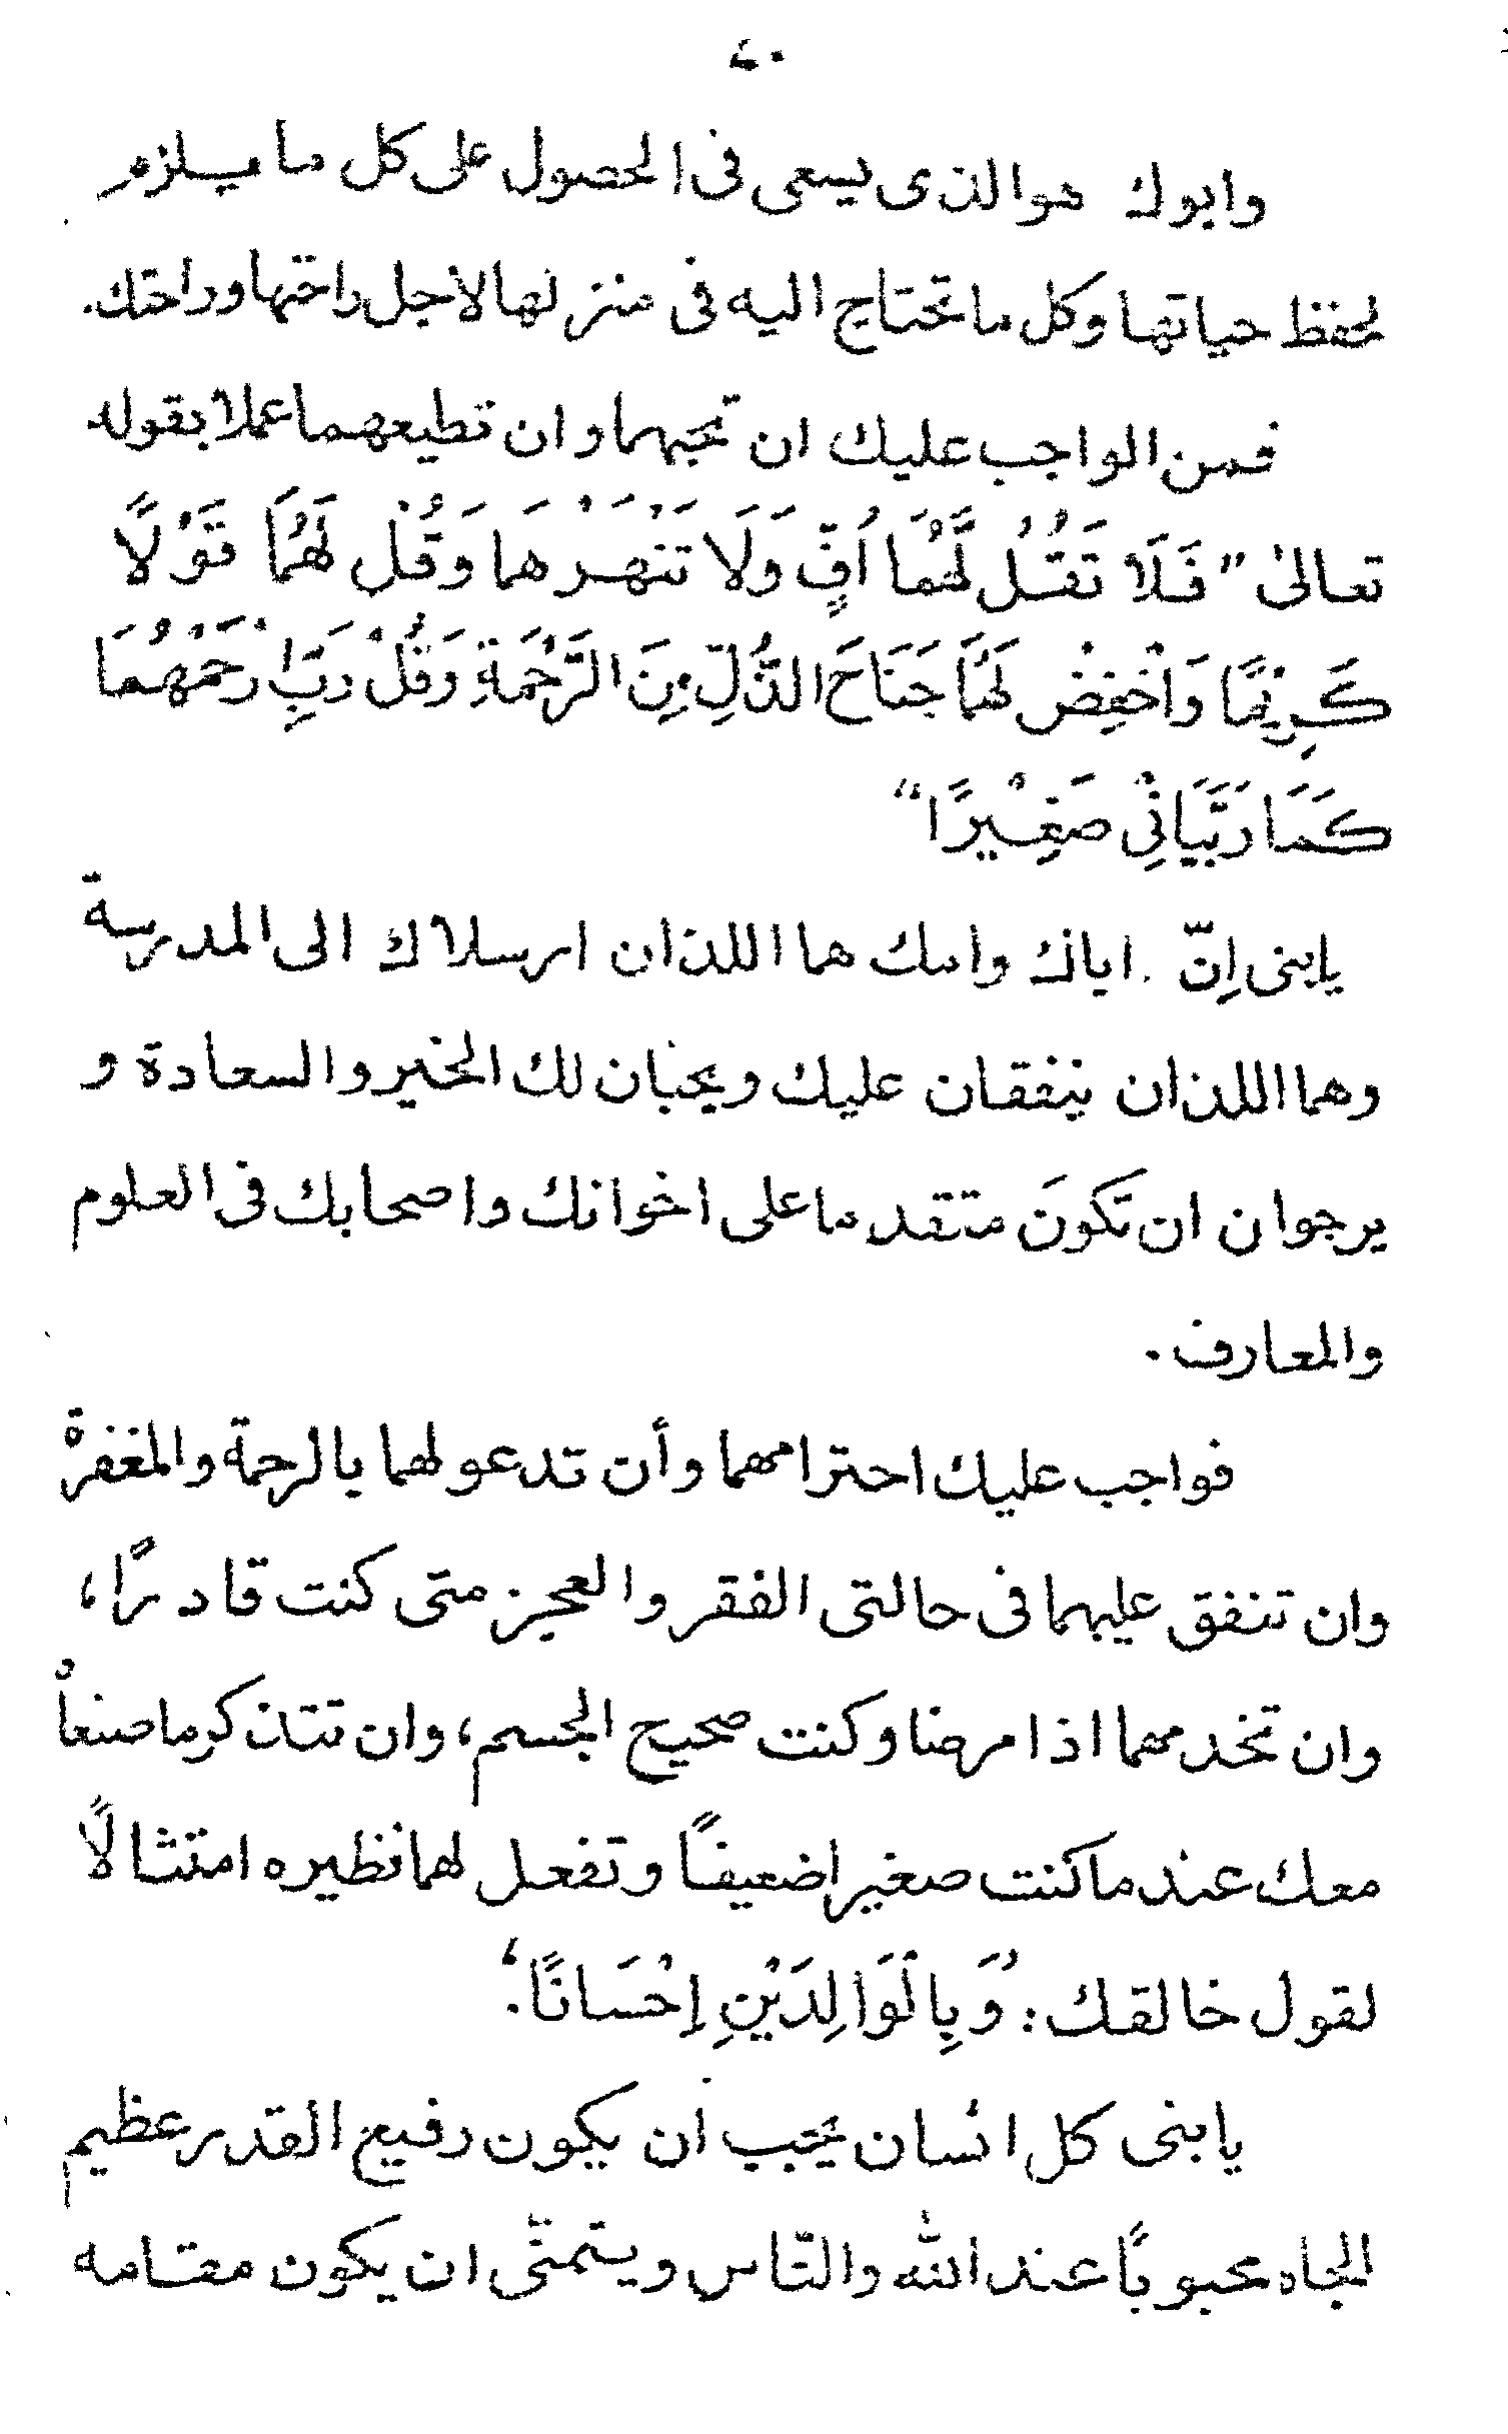 ٤٠
وابوك هوالذى يسعى فى الحصول على كل ما يلزم
لحفظ حياتها وكل ما تحتاج اليه فى منزلها لاجل راحتها وراحتك.
فمن الواجب عليك ان تحبهما وان تطيعهما عملا بقوله
تعالىٰ ”فَلَا تَقُلْ لَّهُمَا اُفٍّ وَلَا تَنْهَرْهَما وَقُلْ لَهُمَا قَوْلًا
كَرِيْمًا وَاخْفِضْ لَهُمَا جَنَاحَ الذُّلِّ مِنَ الرَّحْمَةِ وَقُلْ رَبِّ ارْحَمْهُمَا
كَمَا رَبَّيَانِىْ صَغِيْرًا“
يابنى اِنّ اباك وامك هما اللذان ارسلاك الى المدرسة
وهما اللذان ينفقان عليك ويحبان لك الخير والسعادة و
يرجوان ان تكونَ متقدما على اخوانك واصحابك فى العلوم
والمعارف.
فواجب عليك احترامهما وأن تدعو لهما بالرحمة والمغفرة
وان تنفق عليهما فى حالتى الفقر والعجز متى كنت قادرًا،
وان تخدمهما اذا مرضا وكنت صحيح الجسم، وان تتذكر ما صنعاهُ
معك عند ما كنت صغيرا ضعيفًا وتفعل لهما نظيره امتثالًا
لقول خالقك: ”وَبِالْوَالِدَيْنِ اِحْسَانًا“.
يابنى كل انسان يحب ان يكون رفيع القدر عظيم
الجاه محبوبًا عند الله والنّاس ويتمنّى ان يكون مقامه